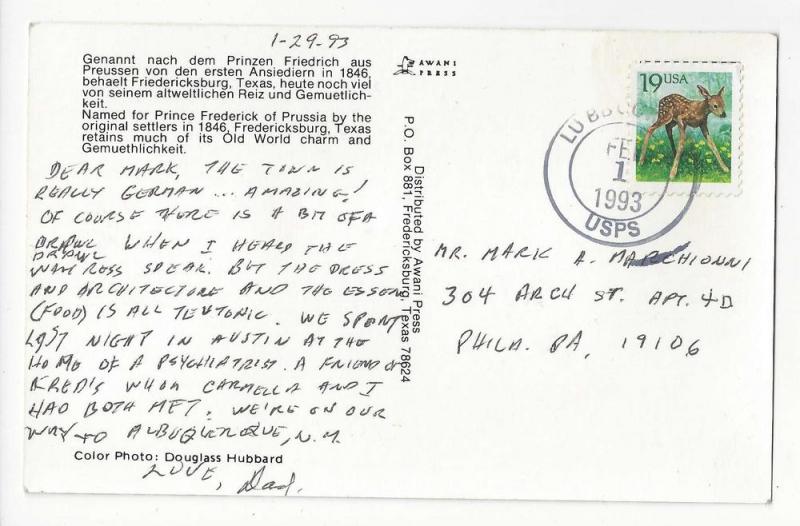 1-29-93
Genannt nach dem Prinzen Friedrich aus
Preussen von den ersten Ansiedlern in 1846,
behaelt Friedericksburg, Texas, heute noch viel
von seinem altweltlichen Reiz und Gemuetlich-
keit.
Named for Prince Frederick of Prussia by the
original settlers in 1846, Fredericksburg, Texas
retains much of its Old World charm and
Gemuethlichkeit.
DEAR MARK, THE TOWN IS
REALLY GERMAN ... AMAZING!
OF COURSE THERE IS A BIT OF A
DRAWL WHEN I HEARD THE
DRAWL
WAITRESS SPEAK. BUT THE DRESS
AND ARCHITECTURE AND THE ESSEN
(FOOD) IS ALL TEUTONIC. WE SPENT
LAST NIGHT IN AUSTIN AT THE
HOME OF A PSYCHIATRIST. A FRIEND OF
FRED'S WHOM CARMELLA AND I
HAD BOTH MET. WE'RE ON OUR
WAY TO ALBUQUERQUE, N.M.
Color Photo: Douglass Hubbard
LOVE, Dad.
AWANI
PRESS
Distributed by Awani Press
P.O. Box 881, Fredericksburg, Texas 78624
19 USA
LUBBOC
FEB
1
1993
USPS
MR. MARK A. MARCHIONNI
304 ARCH ST. APT. 4D
PHILA. PA, 19106